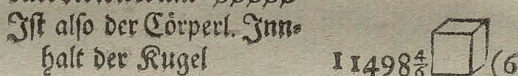 Iſt alſo der Cörperl. Inn⸗
halt der Kugel 11498 4/6 (6